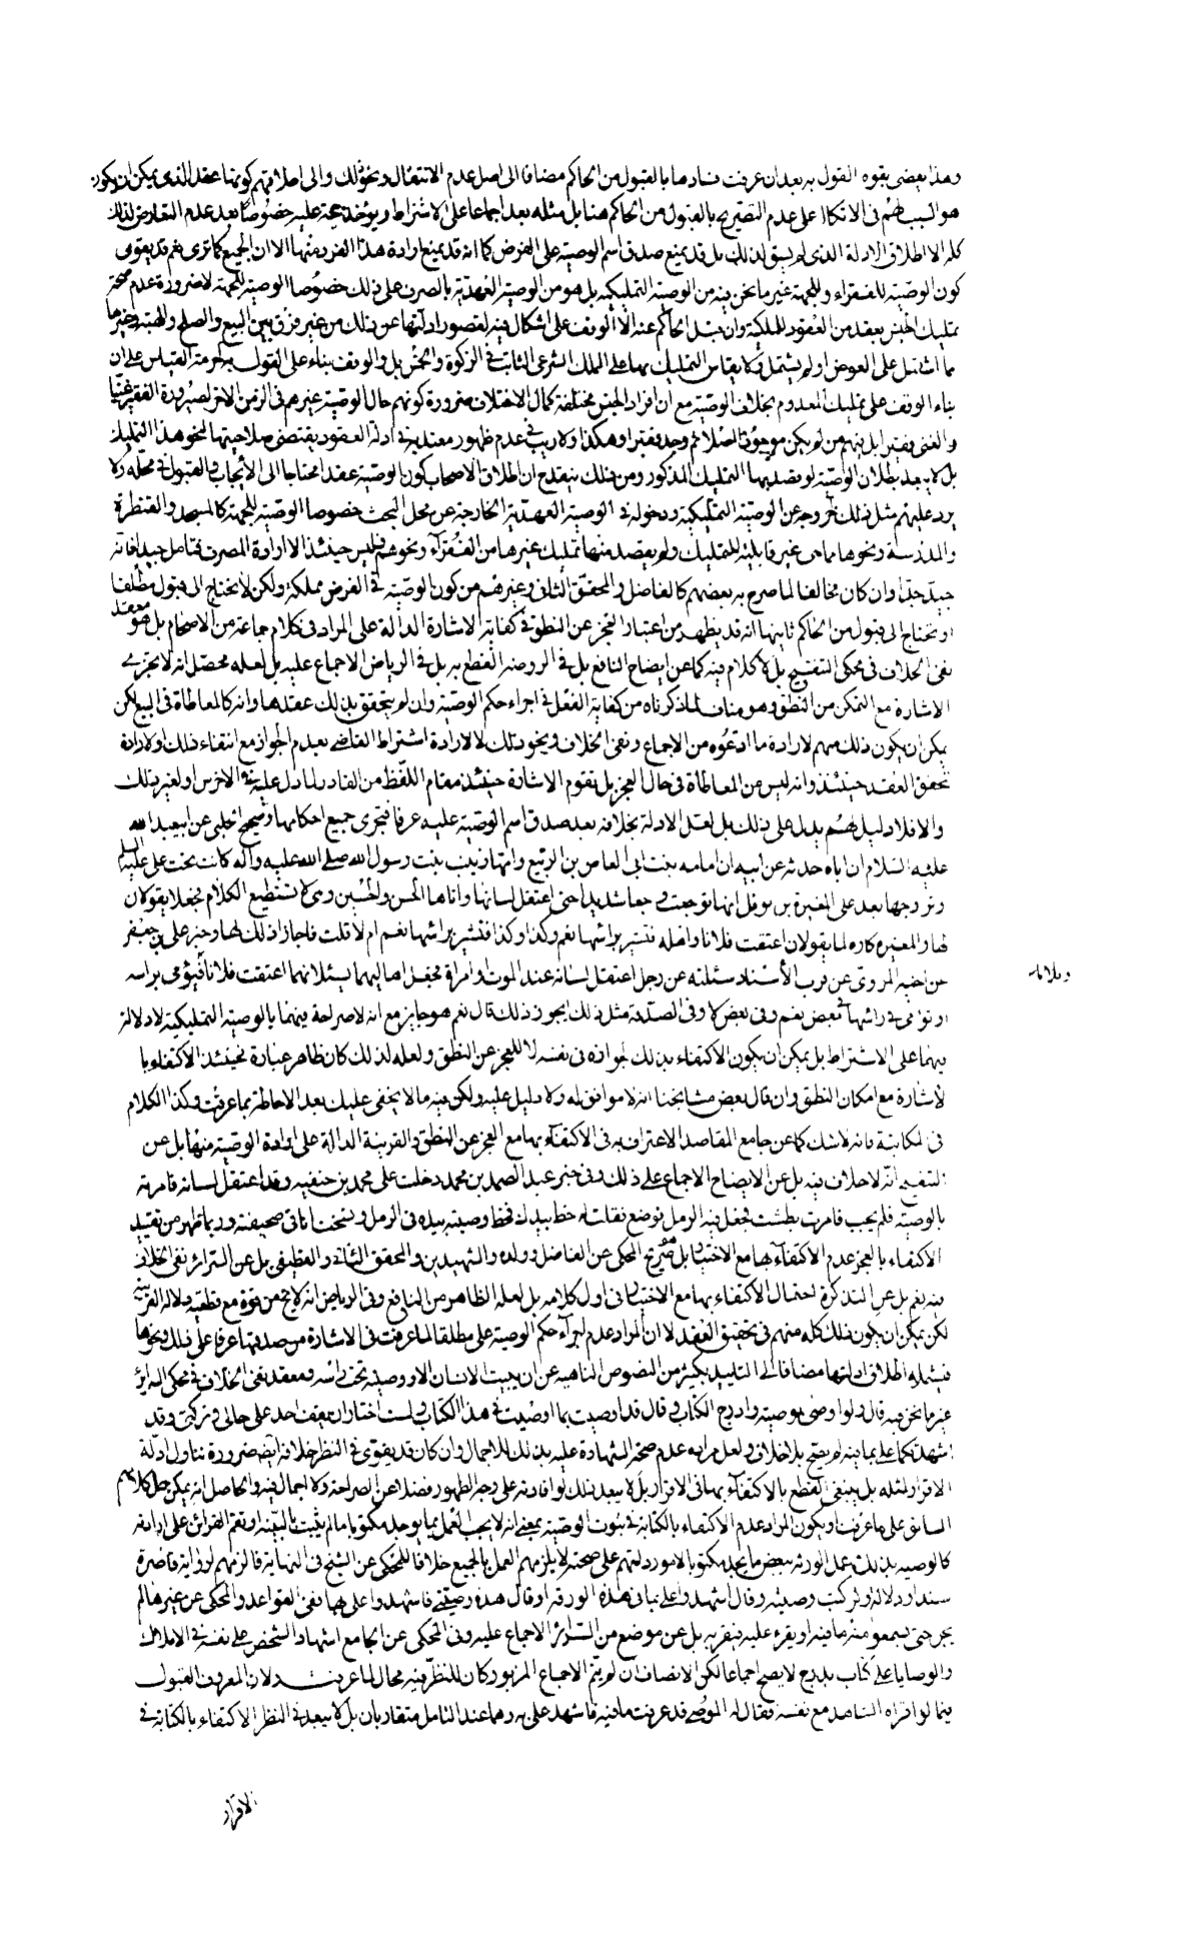 وهذا يعضى بقوه القول به بعد ان عرفت فسادها بالقبول من الحاكم مضافا الى اصل عدم الانتقال ونحو ذلك والى اطلاقهم كونها عقد الذى يمكن ان يكون
هو السبب لهم فى الاتكال على عدم التصريح بالقبول من الحاكم هنا بل مثله بعد اجماعا على الاشتراط ويؤخذ عليه خصوصا بعد عدم التعارض لذلك
كله الا اطلاق الادلة الذى لم يسق لذلك بل قد يمنع صدق اسم الوصية على الفرض كما انه قد يمنع ارادة هذا الفرد منها الا ان الجميع كما ترى نعم قد يقوى
كون الوصية للفقراء وللجهة غير ما نحن فيه من الوصية التمليكيه بل هو من الوصية العهدية بالصرف على ذلك خصوصا الوصية للجهة لا ضرورة عدم صحة
تمليك الجنس بعقد من العقود المملكة وان قبل الحاكم عنه الا الوقف على اشكال فيه لقصور ادلتها عن ذلك من غير فرق بين البيع والصلح والهبة وغيرها
ما اشتمل على العوض او لم يشتمل ولا يقاس التمليك بها على الملك الشرعى الثابت فى الزكوة والخمس بل والوقف بناء على القول به لحرمة القياس على ان
بناء الوقف على تمليك المعدوم بخلاف الوصية مع ان افراد الجنس مختلفة كمال الاختلاف ضرورة كونهم حال الوصية غيرهم فى الزمن الاخر لصيرورة الفقير غنيا
والغنى فقيرا بل فيهم من لم يكن موجودا اصلا ثم وجد فقيرا وهكذا ولا ريب فى عدم ظهور معتد به فى ادلة العقود يقتضى صلاحيتها لنحو هذا التمليك
بل لا يبعد بطلان الوصية لو قصد بها التمليك المذكور ومن ذلك ينقدح ان اطلاق الاصحاب كون الوصية عقدا محتاجا الى الايجاب والقبول فى محله ولا
يرد عليهم مثل ذلك لخروجه عن الوصية التمليكية ودخوله فى الوصية العهدية الخارجة عن محل البحث خصوصا الوصية للجهة كالمسجد والقنطرة
والمدرسة ونحوها مما هى غير قابلة للتمليك ولم يقصد منها تمليك غيرها من الفقراء ونحوهم فليس حينئذ الا ارادة المصرف فتامل جيدا فانه
جيد جدا وان كان مخالفا لما صرح به بعضهم كالفاضل والمحقق الثانى وغيرهم من كون الوصية فى الفرض مملكة ولكن لا يحتاج الى قبول مطلقا
او يحتاج الى قبول من الحاكم ثانيها انه قد يظهر من اعتبار العجز عن النطق فى كفاية الاشارة الدالة على المراد فى كلام جماعة من الاصحاب بل هو معقد
نفى الخلاف فى محكى التنقيح بل لا كلام فيه كما عن ايضاح النافع بل فى الروضة القطع به بل فى الرياض الاجماع عليه بل لعله محصل انه لا يجزى
الاشارة مع التمكن من النطق وهو مناف لما ذكرناه من كفاية الفعل فى اجراء حكم الوصية وان لم يتحقق بذلك عقدها وانه كالمعاطاة فى البيع لكن
يمكن ان يكون ذلك منهم لارادة ما ادعوه من الاجماع ونفى الخلاف ونحو ذلك لا لارادة اشتراط القاضى بعدم الجواز مع انتفاء ذلك او لارادة
تحقق العقد حينئذ وانه ليس من المعاطاة فى حال العجز بل تقوم الاشارة حينئذ مقام اللفظ من القادر لما دل عليه فى الاخرس او لغير ذلك
والا فلا دليل لهم يدل على ذلك بل لعل الادلة بخلافه بعد صدق اسم الوصية عليه عرفا فيجرى جميع احكامها وصحيح الحلبى عن ابيعبد الله
عليه السلام ان اباه حدثه عن ابيه ان امامه بنت ابى العاص بن الربيع وامها زينب بنت رسول الله صلى الله عليه وآله كانت تحت على عليه السلم
وتزوجها بعد على المغيرة بن نوفل انها توجعت وجعا شديدا حتى اعتقل لسانها واتاها الحسن والحسين وهى لا تستطيع الكلام فجعلا يقولان
لها والمغيره كاره لما يقولان اعتقت فلانا واهله فتشير براسها نعم وكذا وكذا فتشير براسها نعم ام لا قلت فاجازا ذلك لها وخبر على بن جعفر
عن اخيه المروى عن قرب الأسناد سئلته عن رجل اعتقل لسانه عند الموت او امراة فجعل اهاليهما يسئلانهما اعتقت فلانا فيؤمى براسه
او تؤمى براسها فى بعض نعم وفى بعض لا وفى الصدقة مثل ذلك ايجوز ذلك قال نعم هو جايز مع انه لا صراحة فيهما بالوصية التمليكية لا دلالة
فيهما على الاشتراط بل يمكن ان يكون الاكتفاء بذلك لجوازه فى نفسه لا للعجز عن النطق ولعله لذلك كان ظاهر عبارة فحينئذ الاكتفاء با
لاشارة مع امكان النطق وان قال بعض مشايخنا انه لا موافق له ولا دليل عليه ولكن فيه ما لا يخفى عليك بعد الاحاطة بما عرفت وكذا الكلام
فى الكتابة فانه لا شك كما عن جامع المقاصد الاعتراف به فى الاكتفاء بها مع العجز عن النطق والقرينة الدالة على ارادة الوصية منها بل عن
التنقيح انه لا خلاف فيه بل عن الايضاح الاجماع على ذلك وفى خبر عبد الصمد بن محمد دخلت على محمد بن حنفيه وقد اعتقل لسانه فامرته
بالوصية فلم يجب فامرت بطشت فجعل فيه الرمل فوضع فقلت له خط بيدك فخط وصيته بيده فى الرمل ونسخت انا فى صحيفة وربما يظهر من تقييد
الاكتفاء بالعجز عدم الاكتفاء بها مع الاختيار بل صريح المحكى عن الفاضل وولده والشهيدين والمحقق الثانى والقطيفى بل عن السرائر نفى الخلاف
فيه نعم بل عن التذكرة احتمال الاكتفاء بها مع الاختيار فى اول كلامه بل لعله الظاهر من النافع وفى الرياض انه لا يخ من قوة مع قطعية دلالة القرينة
لكن يمكن ان يكون ذلك كله منهم فى تحقيق العقد لا ان المراد عدم اجراء حكم الوصية على مطلقا لما عرفت فى الاشارة من صدقها عرفا على ذلك ونحوها
فيشمله اطلاق ادلتها مضافا الى التاييد بكثير من النصوص الناهيه عن ان يبيت الانسان الا ووصيته تحت راسه ومعقد نفى الخلاف فى محكى السرائر
غير ما نحن فيه قال ولو اوصى بوصية وادرج الكتاب وقال قد اوصيت بما اوصيت فى هذا الكتاب ولست اختار ان يقف احد على حالى وتركتى وقد
اشهدتكما على بما فيه لم يصح بلا خلاف ولعل مراده عدم صحة الشهادة عليه بذلك للاجمال وان كان قد يقوى فى النظر خلافه ايضا ضرورة تناول ادلة
الاقرار لمثله بل ينبغى القطع بالاكتفاء بها فى الاقرار بل لا يبعد ذلك لو افادته على وجه الظهور فضلا عن الصراحة ولا اجمال فيه والحاصل انه يمكن حمل كلامهم
السابق على ما عرفت او يكون المراد عدم الاكتفاء بالكتابة فى ثبوت الوصية بمعنى انه لا يجب العمل بما يوجد مكتوبا ما لم يثبت بالبينة او تقم القرائن على ارادته
كالوصيه بذلك وعمل الورثه ببعض ما يجد مكتوبا لا مورد لتهم على صحته لا يلزمهم العمل بالجميع خلافا للمحكى عن الشيخ فى النهاية فالزمهم لرواية قاصرة
سندا ودلالة ولو كتب وصيته وقال اشهدوا على بما فى هذه الورقه او قال هذه وصيتى فاشهدوا على بها ففى القواعد والمحكى عن غيرها لم
يجز حتى يسمعوا منه ما فيه او يقرء عليه فيقر به بل عن موضع من السرائر الاجماع عليه وفى المحكى عن الجامع اشهاد الشخص على نفسه فى الاملاك
والوصايا على كتاب مدرج لا يصح اجماعا لكن الانصاف ان لم يتم الاجماع المزبور كان للنظر فيه مجال لما عرفت ولان المعروف القبول
فيما لو اقراه الشاهد مع نفسه فقال له الموصى قد عرفت ما فيه فاشهد على به وهما عند التامل متقاربان بل لا يبعد فى النظر الاكتفاء بالكتابة فى
الاقرار